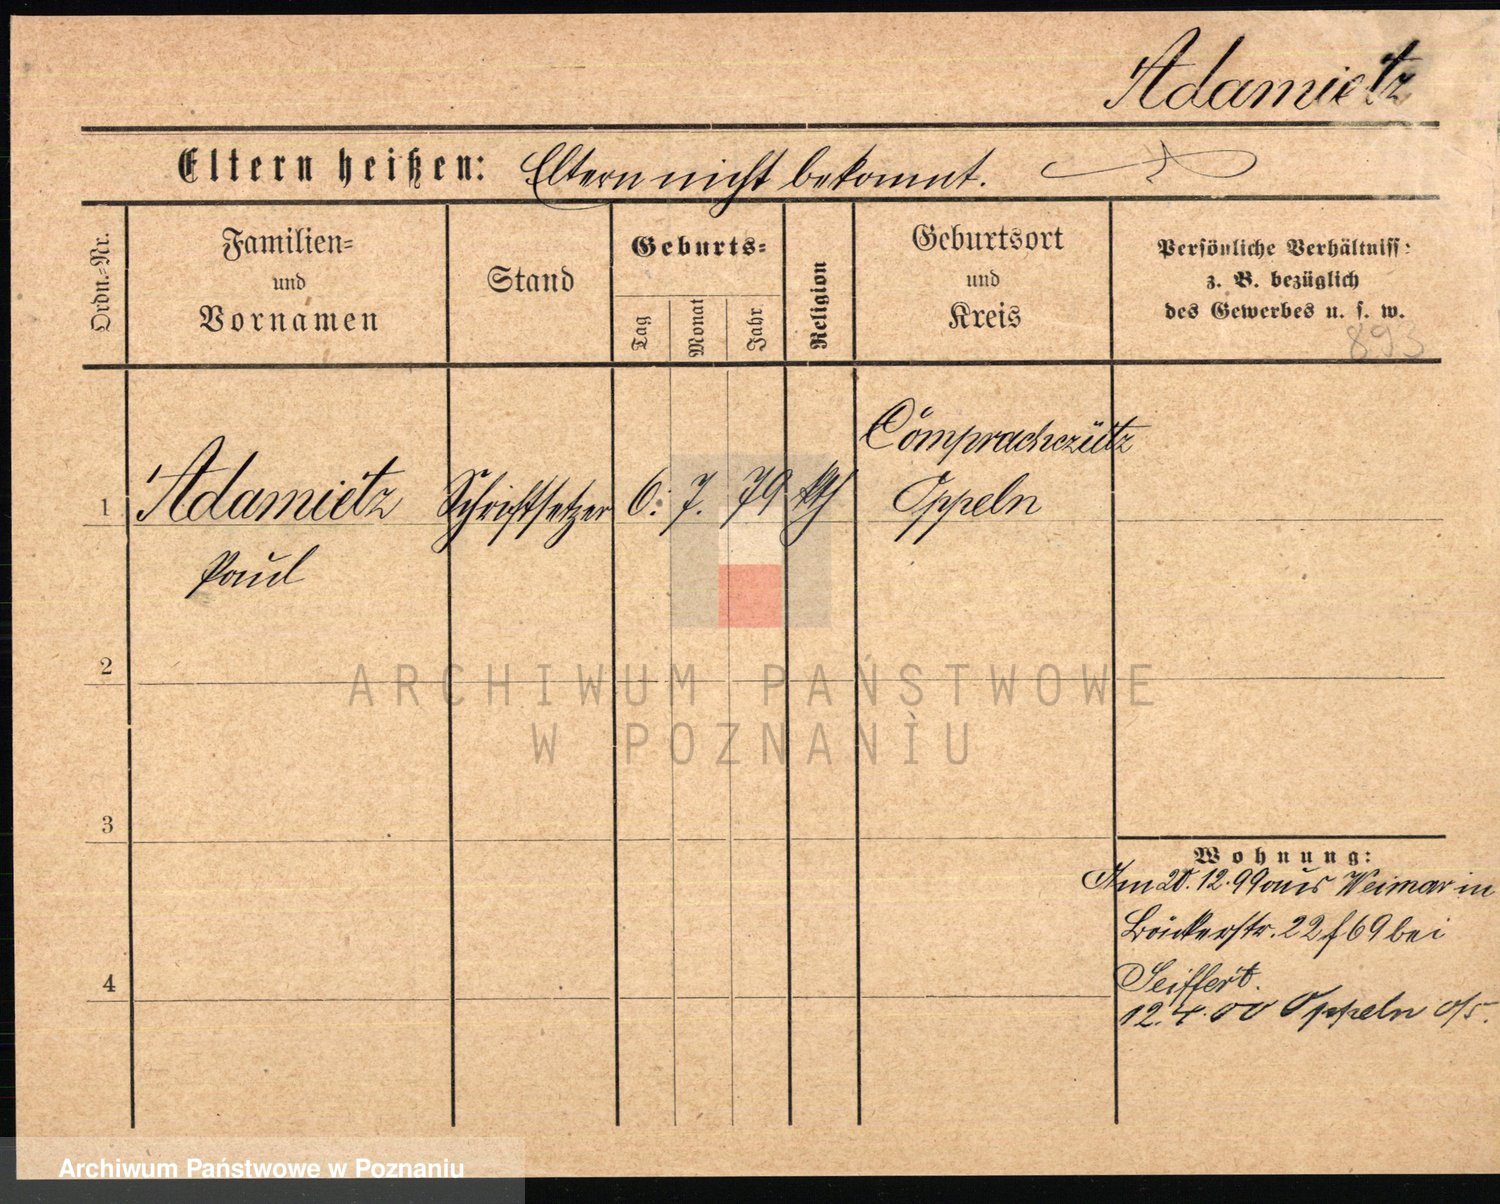 Adamietz
Eltern heißen: Eltern nicht bekannt.
Ordn.=Nr.
Familien=
und
Vornamen
Stand
Geburts=
Tag
Monat
Jahr
Religion
Geburtsort
und
Kreis
Persönliche Verhältniss:
z. B. bezüglich
des Gewerbes u. s. w.
893
1 Adamietz Schriftsetzer 6. 7. 79 kth
Paul
Comprachczütz
Oppeln
2
3
4
Wohnung:
Am 20.12.99 aus Weimar in
Bäckerstr. 22 f 69 bei
Seiffert.
12.4.00 Oppeln o/s.
ARCHIWUM PAŃSTWOWE
W POZNANIU
Archiwum Państwowe w Poznaniu